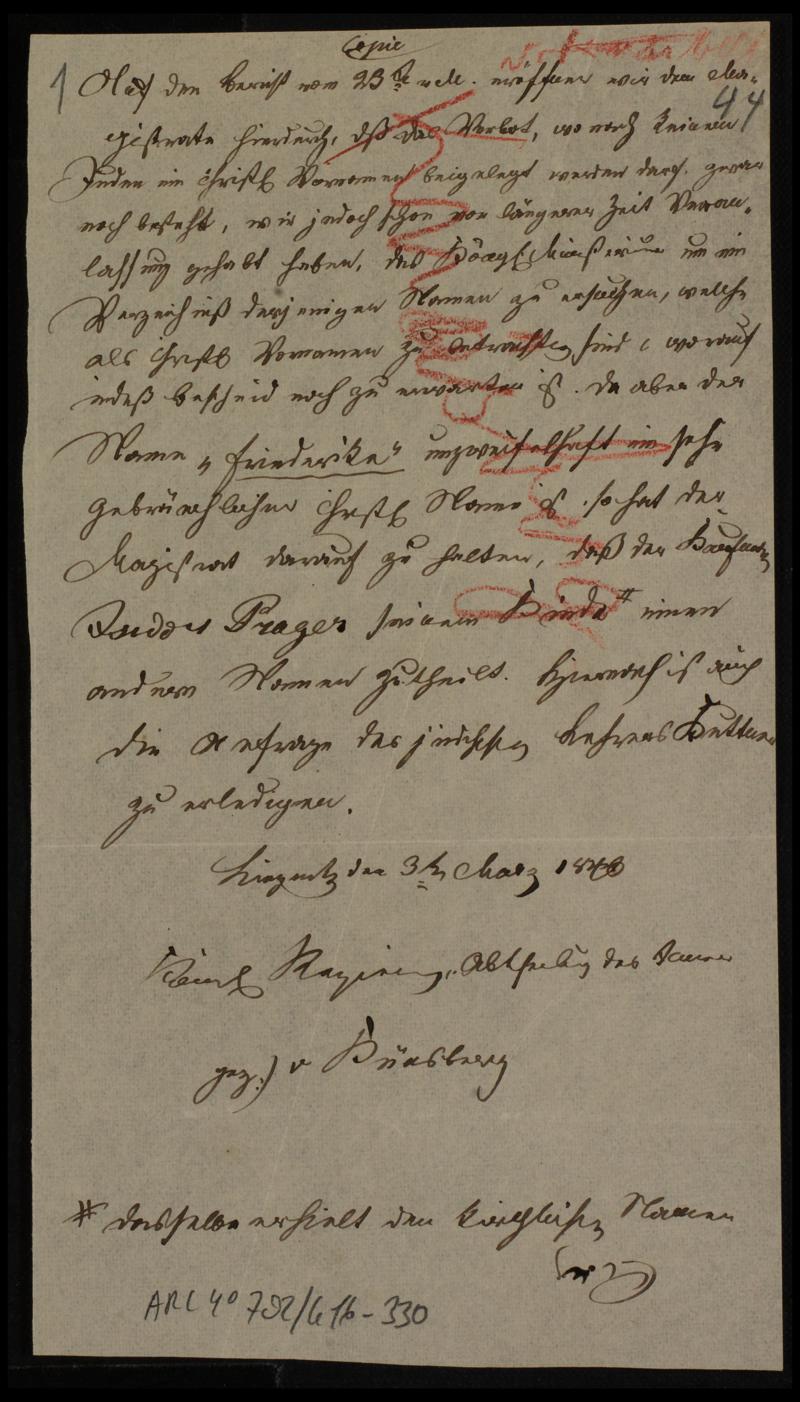 Copie
1 Auf den Bericht vom 23t v. M. eröffnen wir dem Ma-
44
gistrate hierdurch, daß das Verbot, wonach keinem
Juden ein christl Vornamen beigelegt werden darf, zwar
noch besteht, wir jedoch schon vor längerer Zeit Veran-
lassung gehabt haben, das Königl Ministerium um ein
Verzeichniß derjenigen Namen zu ersuchen, welche
als christl Vornamen zu betrachten sind, worauf
indeß Bescheid noch zu erwarten ist. Da aber der
Name „Friederike" unzweifelhaft ein sehr
gebräuchlicher christl Name ist, so hat der
Magistrat darauf zu halten, daß der Kaufmann
Isidor Prager seinem Kinde # einen
andern Namen zutheilt. Hiernach ist auch
die Anfrage des jüdischen Lehrers Kuttner
zu erledigen.
Liegnitz den 3ten März 18
Königl Regierung, Abtheilung des Innern
gez.) v
# dasselbe erhielt den Namen
ARC 4° 792/ -330